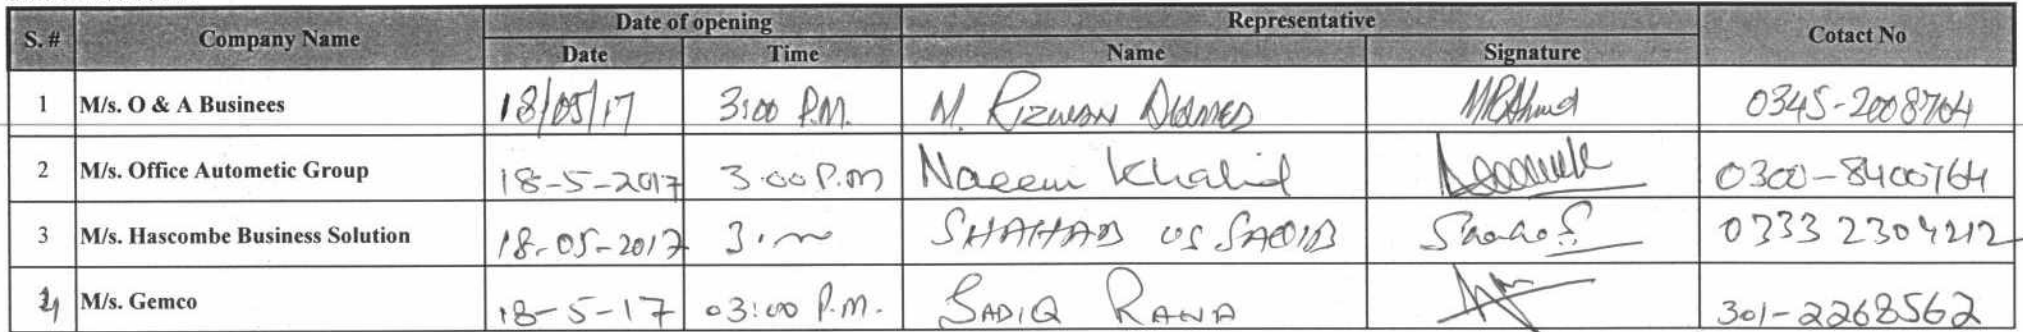 S. # Company Name Date of opening Representative Cotact No
Date Time Name Signature
1 M/s. O & A Businees 18/05/17 3:00 P.M. M. Rizwan Ahmed MRAhmd 0345-2008764
2 M/s. Office Autometic Group 18-5-2017 3.00 P.m Naeem Khalid 0300-8400764
3 M/s. Hascombe Business Solution 18-05-2017 SHAHAB US SAQIB 0333 2304212
4 M/s. Gemco 18-5-17 03:00 P.m. SADIQ RANA 301-2268562